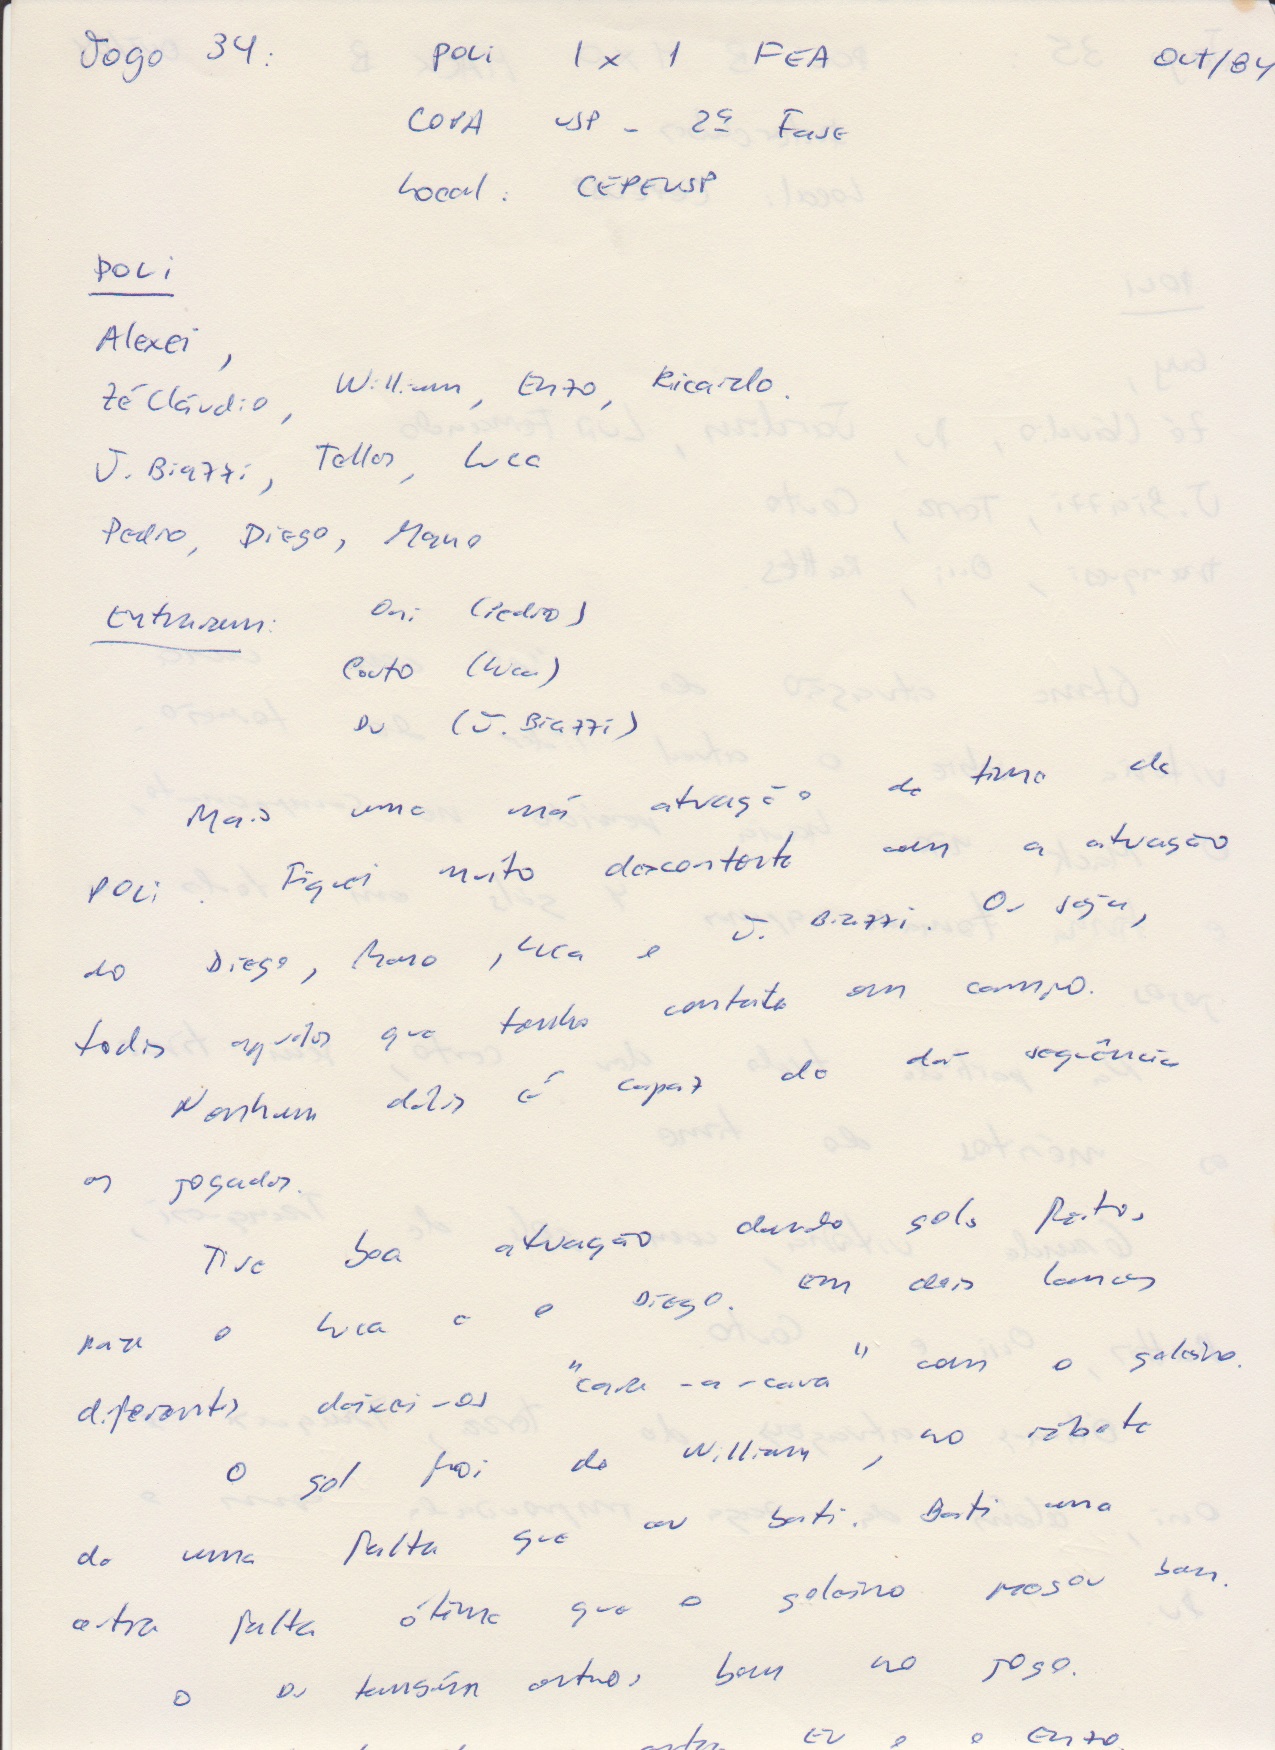 Jogo 34: POLI 1 x 1 FEA Out/84
COPA USP - 2ª Fase
Local: CEPEUSP
POLI
Alexei,
Zé Cláudio, William, Enzo, Ricardo.
J. Biazzi, Telles, Luca
Pedro, Diego, Mano
Entraram: Oni (Pedro)
Couto (Luca)
Du (J. Biazzi)
Mais uma má atuação do time da
POLI. Fiquei muito descontente com a atuação
do Diego, Mano, Luca e J. Biazzi. Ou seja,
todos aqueles que tenho contato em campo.
Nenhum deles é capaz de dar sequência
as jogadas.
Tive boa atuação dando gols feitos
para o Luca e o Diego. Em dois lances
diferentes deixei-os "cara-a-cara" com o goleiro.
O gol foi do William, no rebote
de uma falta que eu bati. Bati uma
outra falta ótima que o goleiro pegou bem.
O Du também entrou bem no jogo.
entre eu e o Enzo.